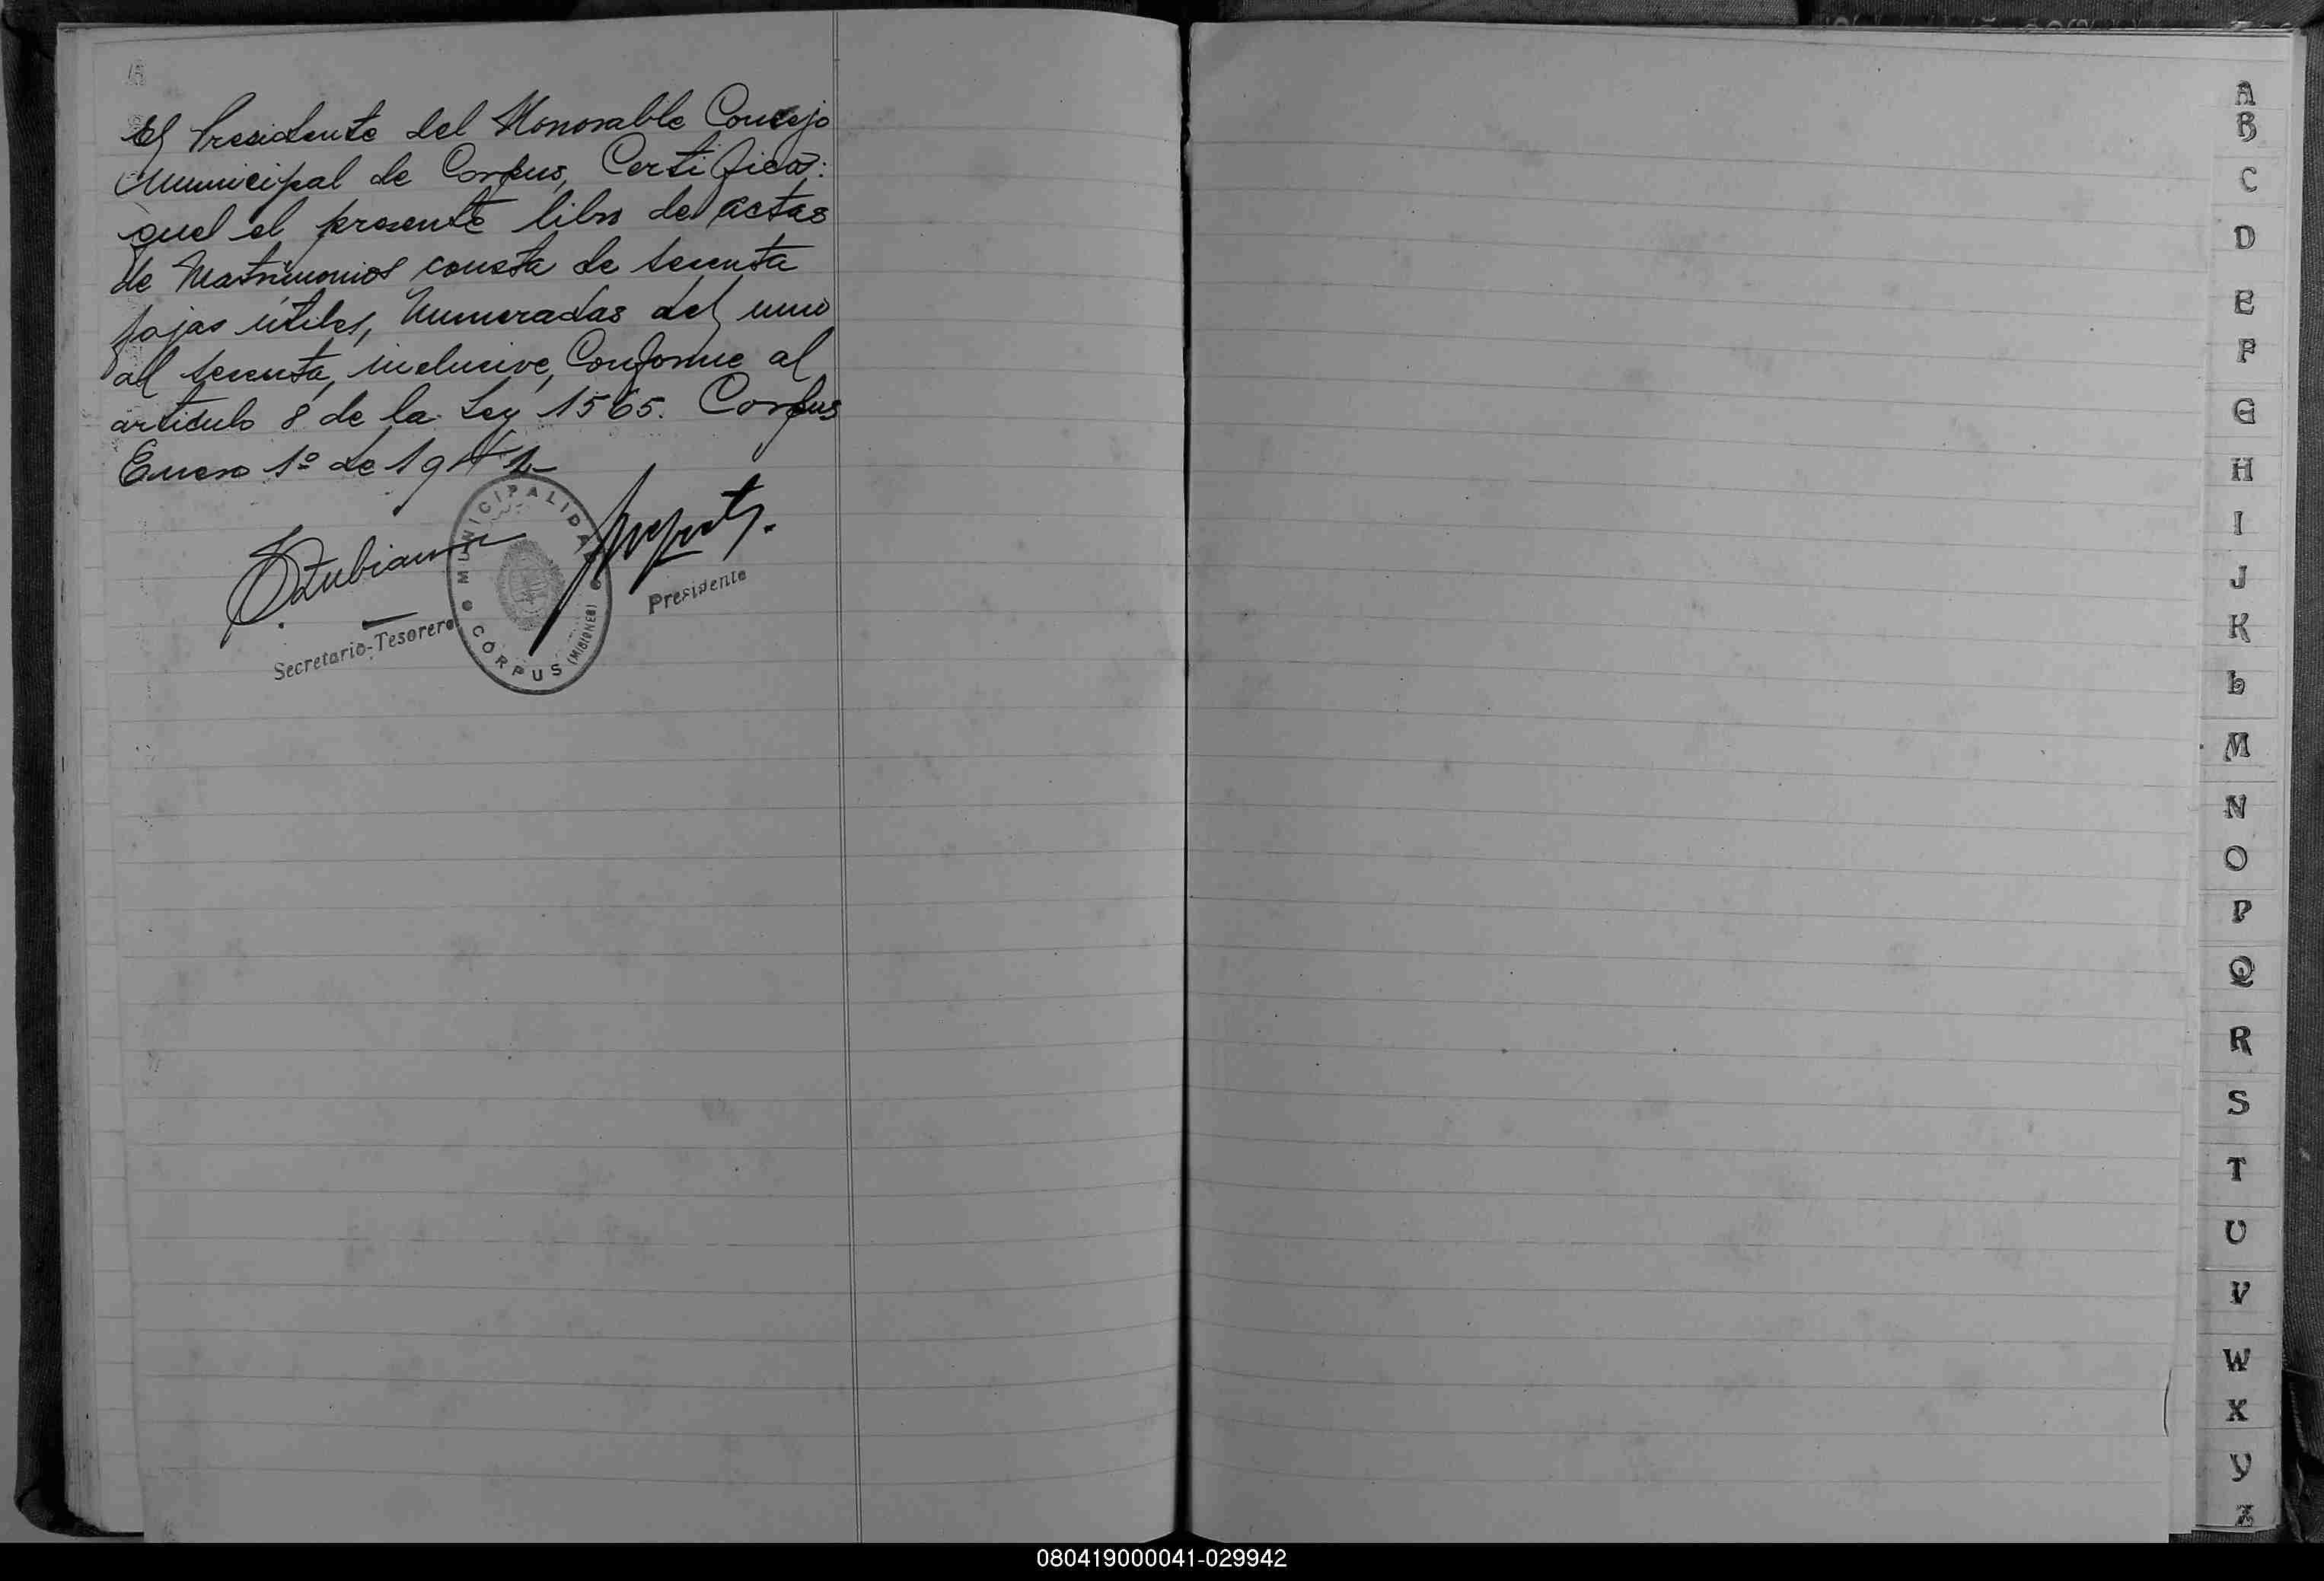 El Presidente del Honorable Concejo
Municipal de Corpus, Certifica:
que el presente libro de actas
de Matrimonios consta de sesenta
fojas útiles, Numeradas del uno
al sesenta, inclusive, Conforme al
articulo 8 de la Ley 1565. Corpus
Enero 1º de 194
MUNICIPALIDAD
CORPUS (MISIONES)
Secretario-Tesorero
Presidente
A
B
C
D
E
F
G
H
I
J
K
L
M
N
O
P
Q
R
S
T
U
V
W
X
Y
Z
080419000041-029942